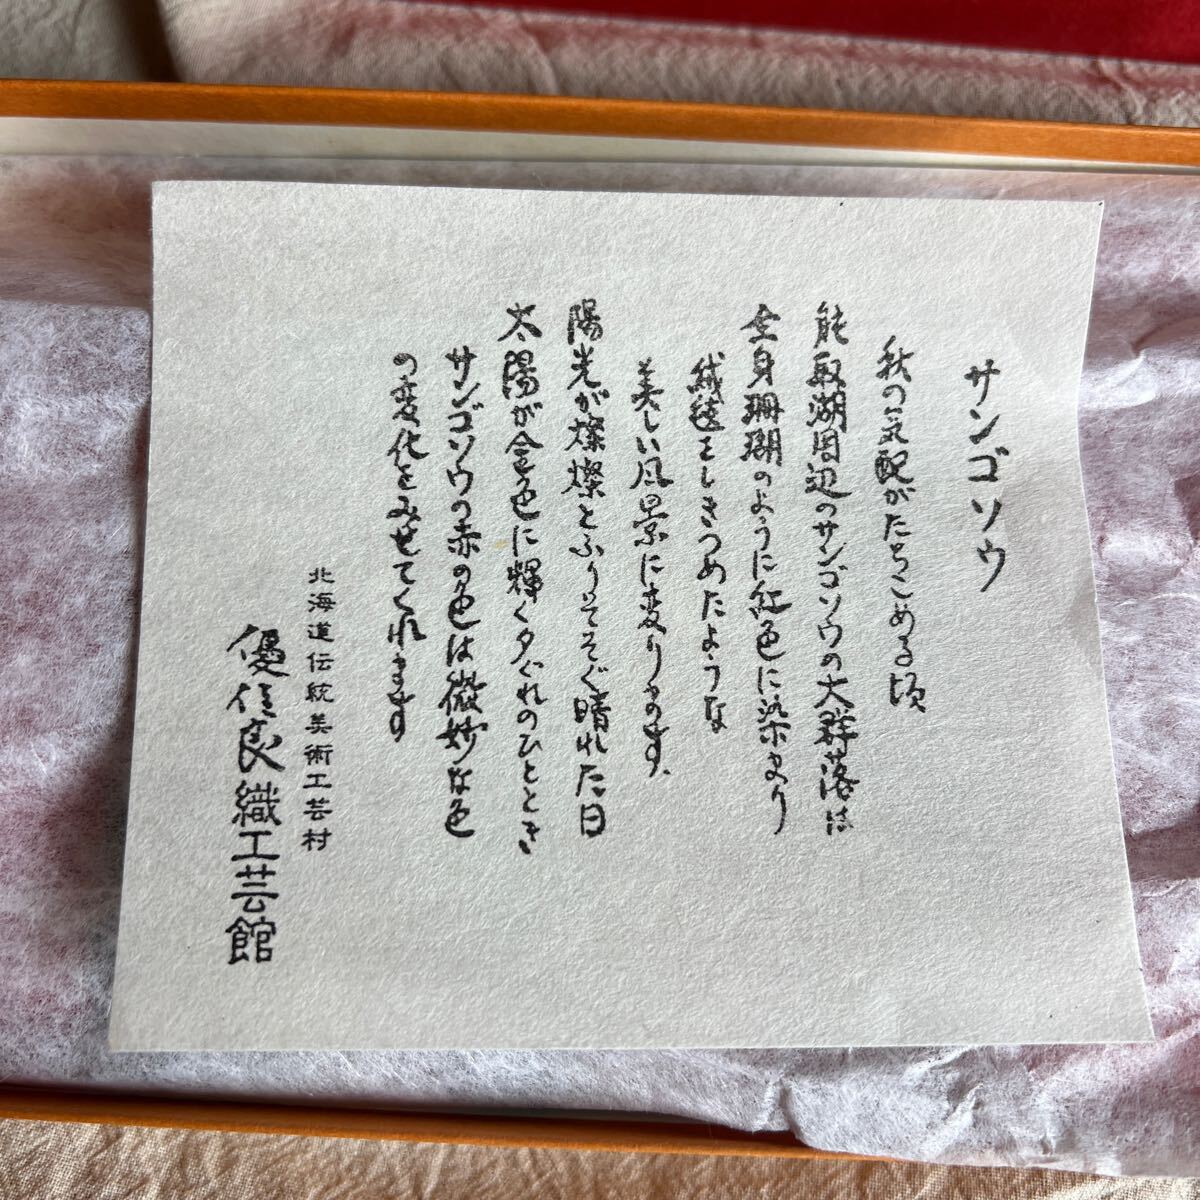 サンゴソウ
秋の気配がたちこめる頃
能取湖周辺のサンゴソウの大群落は
全身珊瑚のように紅色に染まり
絨毯をしきつめたような
美しい風景に変ります、
陽光が燦燦とふりそそぐ晴れた日
太陽が金色に輝く夕ぐれのひととき
サンゴソウの赤の色は微妙な色
の変化をみせてくれます
北海道伝統美術工芸村
優佳良織工芸館